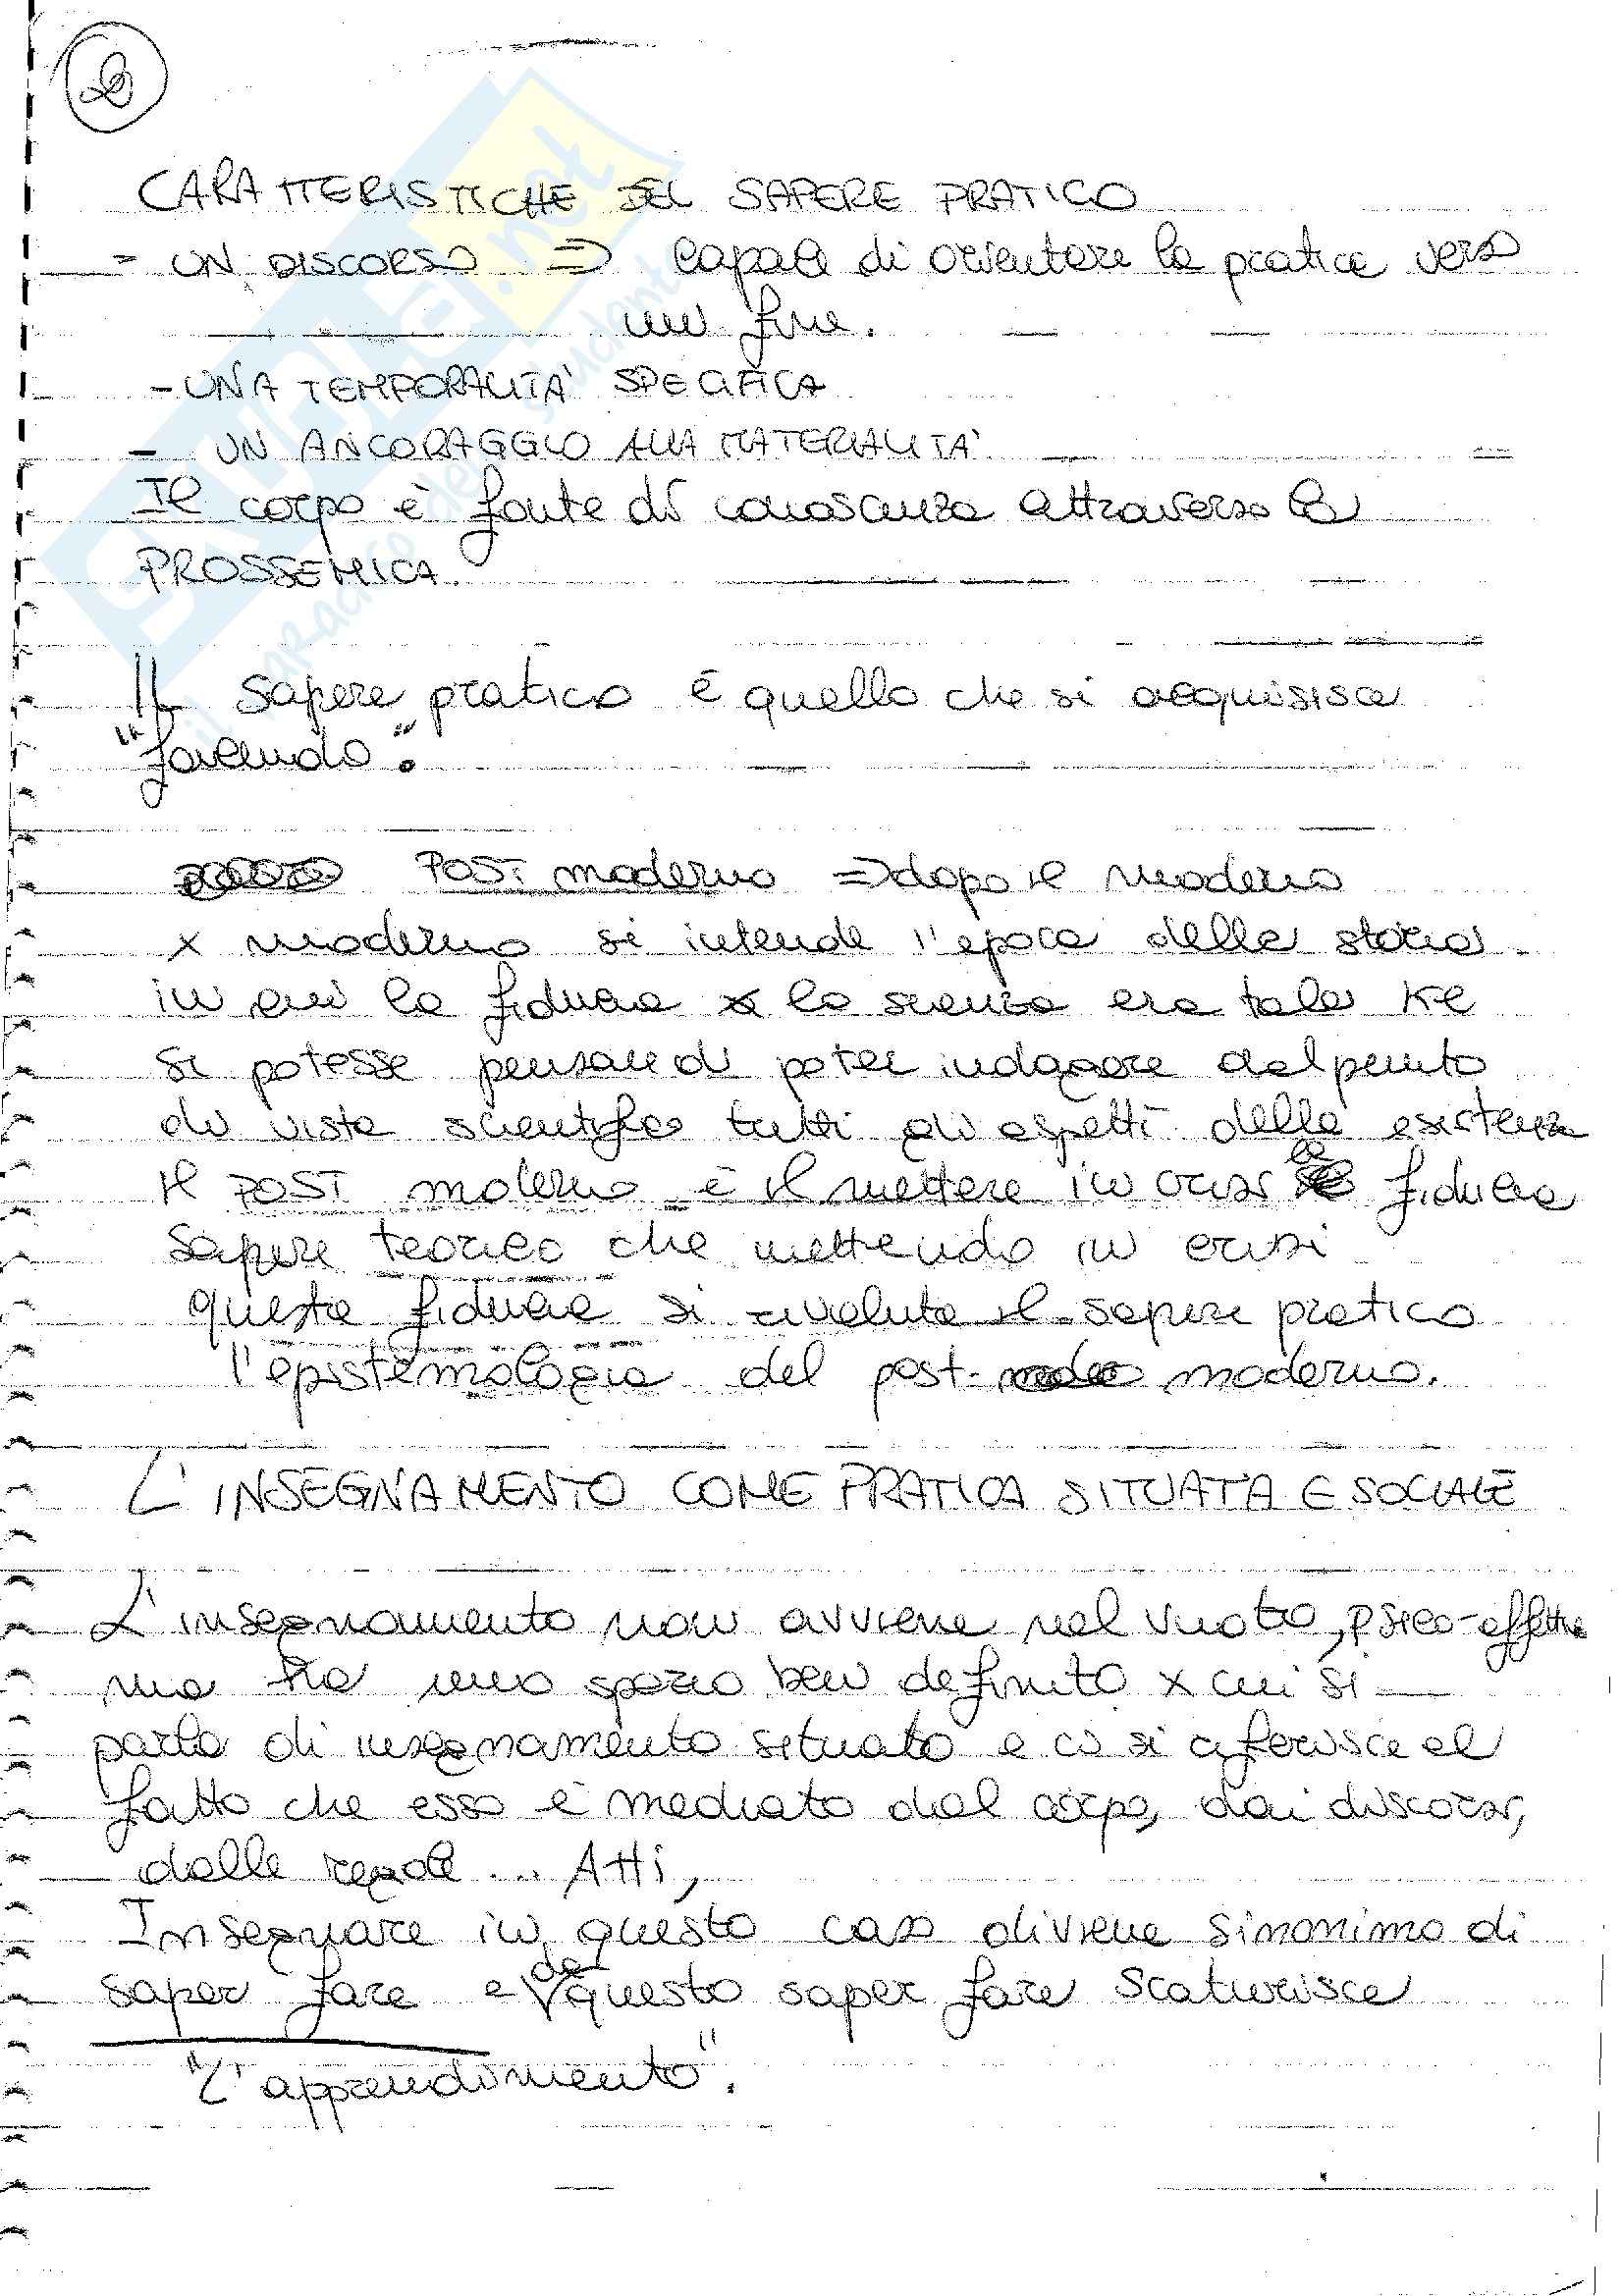 2
CARATTERISTICHE DEL SAPERE PRATICO
- UN DISCORSO ⇒ capace di orientare la pratica verso
un fine.
- UNA TEMPORALITA' SPECIFICA
- UN ANCORAGGIO ALLA MATERIALITA'
Il corpo è fonte di conoscenza attraverso la
PROSSEMICA.
Il sapere pratico è quello che si acquisisce
"facendo".
POST moderno ⇒ dopo il moderno
x moderno si intende l'epoca della storia
in cui la fiducia x la scienza era tale ke
si potesse pensare di poter indagare dal punto
di vista scientifico tutti gli aspetti della esistenza
il POST moderno è il mettere in crisi la fiducia
sapere teorico che mettendo in crisi
questa fiducia si rivaluta il sapere pratico
l'epistemologia del post- moderno.
L'INSEGNAMENTO COME PRATICA SITUATA E SOCIALE
L'insegnamento non avviene nel vuoto, psico-affettivo
ma ha uno spazio ben definito x cui si
parla di insegnamento situato e ci si riferisce al
fatto che esso è mediato dal corpo, dai discorsi,
dalle regole ... Atti,
Insegnare in questo caso diviene sinonimo di
saper fare e da questo saper fare scaturisce
"L'apprendimento".
.net